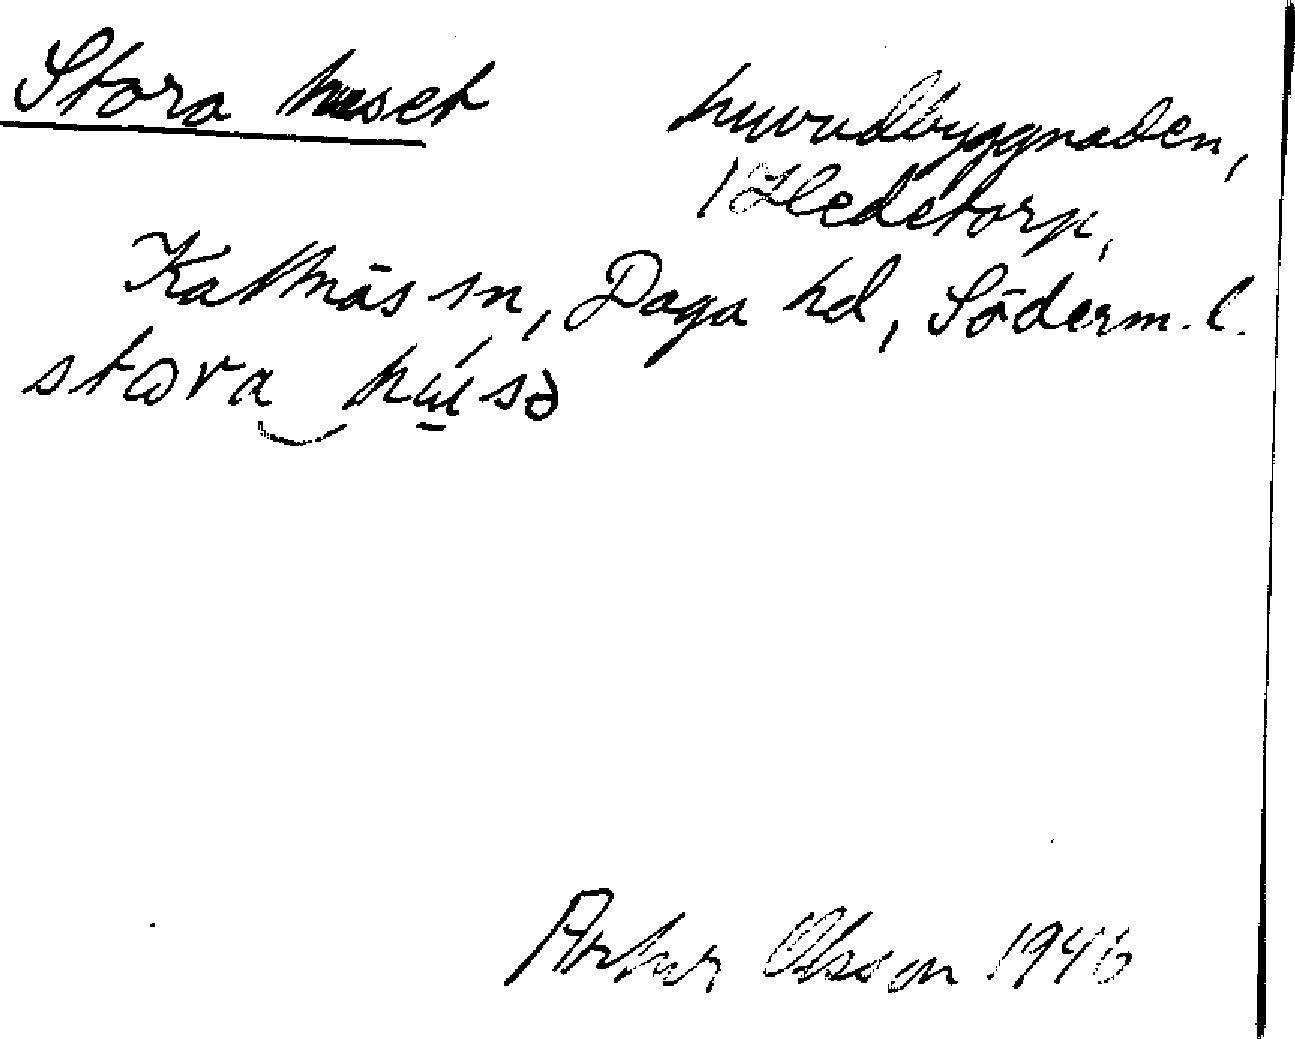 Stora huset huvudbyggnaden,
Hedetorp,
Kattnäs sn, Daga hd, Söderm. l.
stora húsə
Artur Olsson 1946